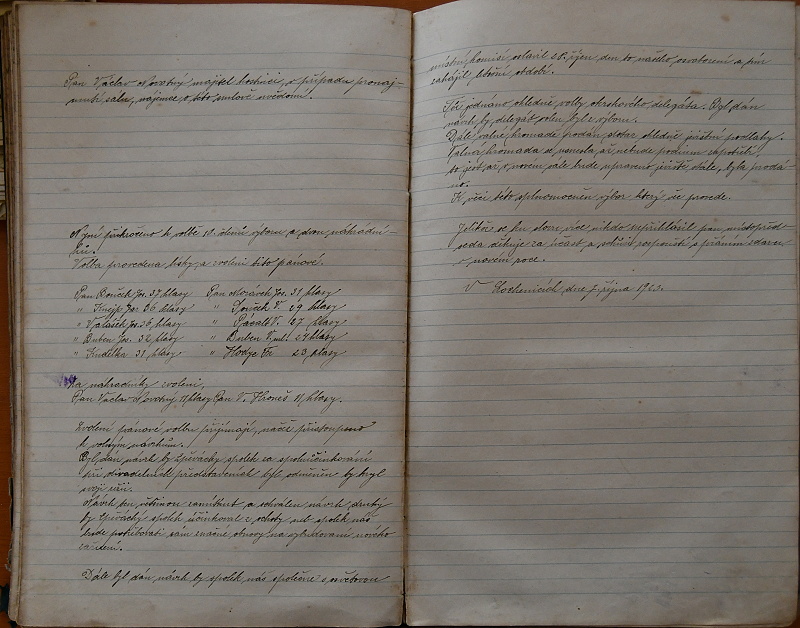 Pan Václav Novotný majitel hostinci, v případu pronaj-
mutí sálu, nájemce o této smlouvě uvědomí.
Nyní přikročeno k volbě 10 členů výboru a dvou náhradní-
ků.
Volba provedena lístky a zvoleni tito pánové.
Pan Bouček Jos. 37 hlasy Pan Morávek Jos. 31 hlasy
" Knejp Jar. 36 hlasy " Souček V. 29 hlasy
" Valášek Jos. 36, hlasy " V. 27 hlasy
" Duben Jos. 32 hlasy " Duben V. ml. 24 hlasy
" Kudělka 31, hlasy " Hodye Fr. 23 hlasy
Za náhradníky zvoleni,
Pan Václav Novotný 11 hlasy Pan V. Kroneš 11 hlasy.
Zvolení pánové volbu přijímají, načež přistoupeno
k volným návrhům.
Byl dán návrh by zpěvácký spolek za spoluúčinkování
při divadelních představeních byl odměněn by kryl
svoji režii.
Návrh ten většinou zamítnut a schválen návrh druhý
by zpěvácký spolek účinkoval z ochoty neb spolek náš
bude potřebovati sám značné obnosy na vybudování nového
zařízení.
Dále byl dán návrh by spolek náš společně s osvětovou
místní komisí oslavil 28. říjen, den to našeho osvobození a tím
zahájil zimní období.
Též jednáno ohledně volby okrskového delegáta. Byl dán
návrh by delegát volen byl z výboru.
Dále valné hromadě podán dotaz ohledně jeviště podlahy.
Valná hromada se usnesla, až nebude podium zapotřebí,
to jest až v novém sále bude upraveno jeviště stálé, byla prodá-
na.
K věci této splnomocněn výbor který vše provede.
Jelikož se ku slovu více nikdo nepřihlásil pan místopřed-
seda děkuje za účast a schůzi rozpouští s přáním zdaru
v novém roce.
V Lochenicích dne 7. října 1923.